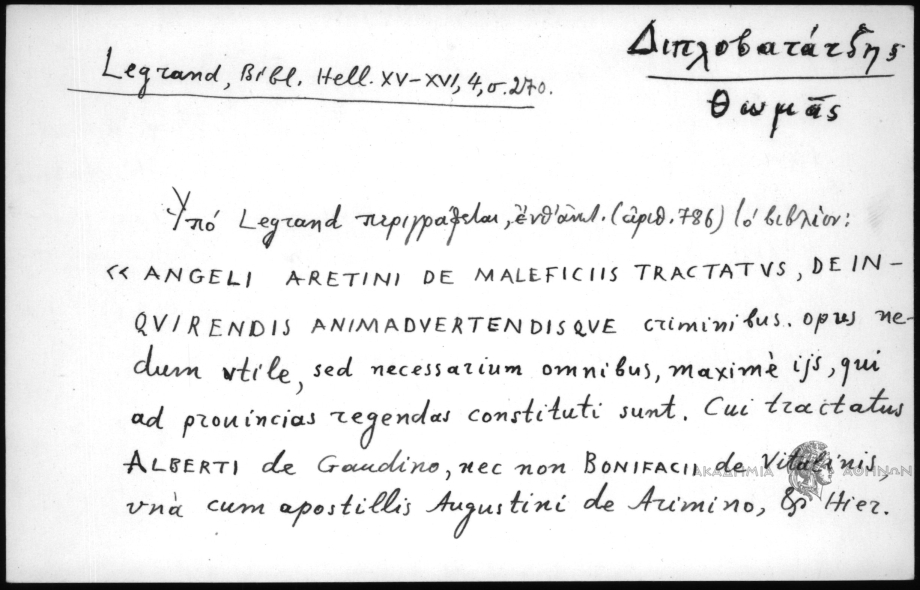 Διπλοβατάτζης
Θωμᾶς
Legrand, Bibl. Hell. XV-XVI, 4, σ. 270.
Ὑπό Legrand περιγράφεται, ἔνθ' ἀνωτ. (ἀριθ. 786) τό βιβλίον:
« ANGELI ARETINI DE MALEFICIIS TRACTATVS, DE IN-
QVIRENDIS ANIMADVERTENDISQVE criminibus. opus ne-
dum vtile, sed necessarium omnibus, maximè ijs, qui
ad prouincias regendas constituti sunt. Cui tractatus
ALBERTI de Gaudino, nec non BONIFACII de Vitalinis,
vnà cum apostillis Augustini de Arimino, & Hier.
ΑΚΑΔΗΜΙΑ ΑΘΗΝΩΝ